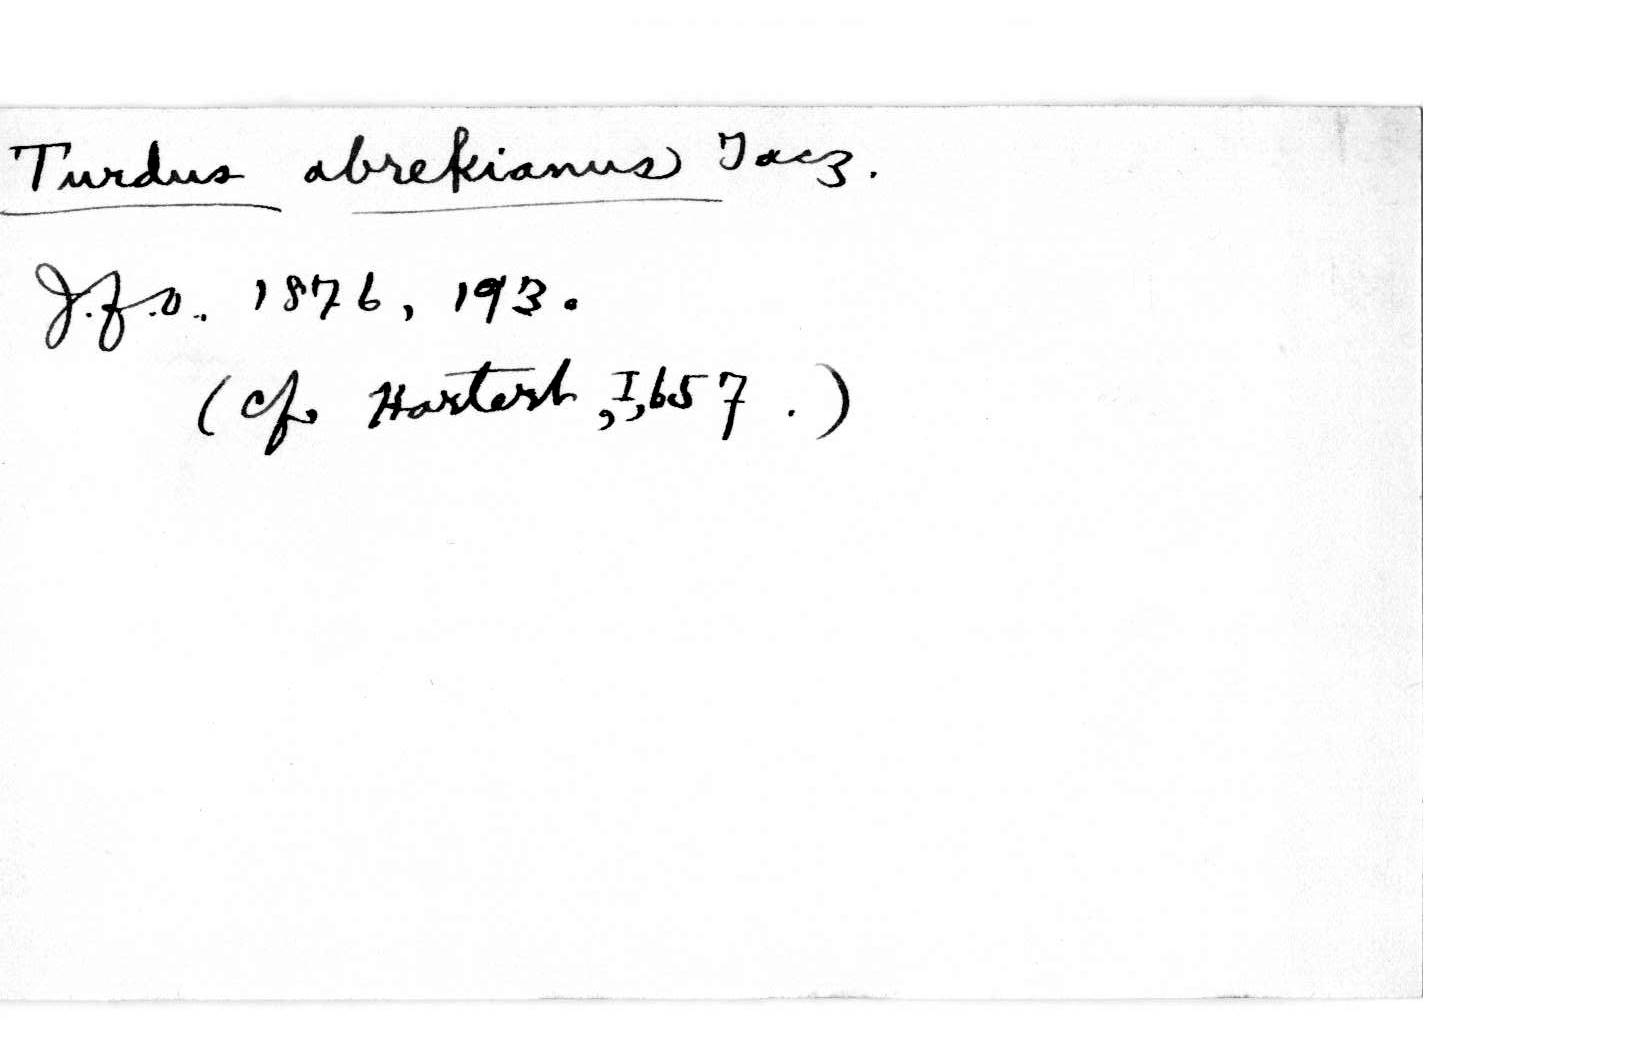 Turdus abrekianus Tacz.
J.f.O. 1876, 193.
(cf. Hartert, I, 657.)